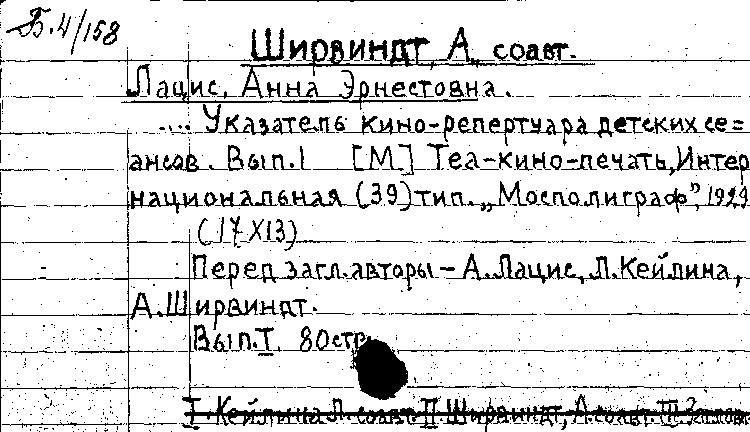 Б.4/158
Ширвиндт, А. соавт.
Лацис, Анна Эрнестовна.
.... Указатель кино-репертуара детских се=
ансов. Вып.1 [М.] Теа-кино-печать, Интер
национальная (39) тип. „Мосполиграф", 1929
(17X13)
Перед загл. авторы – А.Лацис, Л.Кейлина,
А.Ширвиндт.
Вып.I. 80 стр.
I. Кейлина Л. соавт. II. Ширвиндт, А.соавт. III. Заглав.